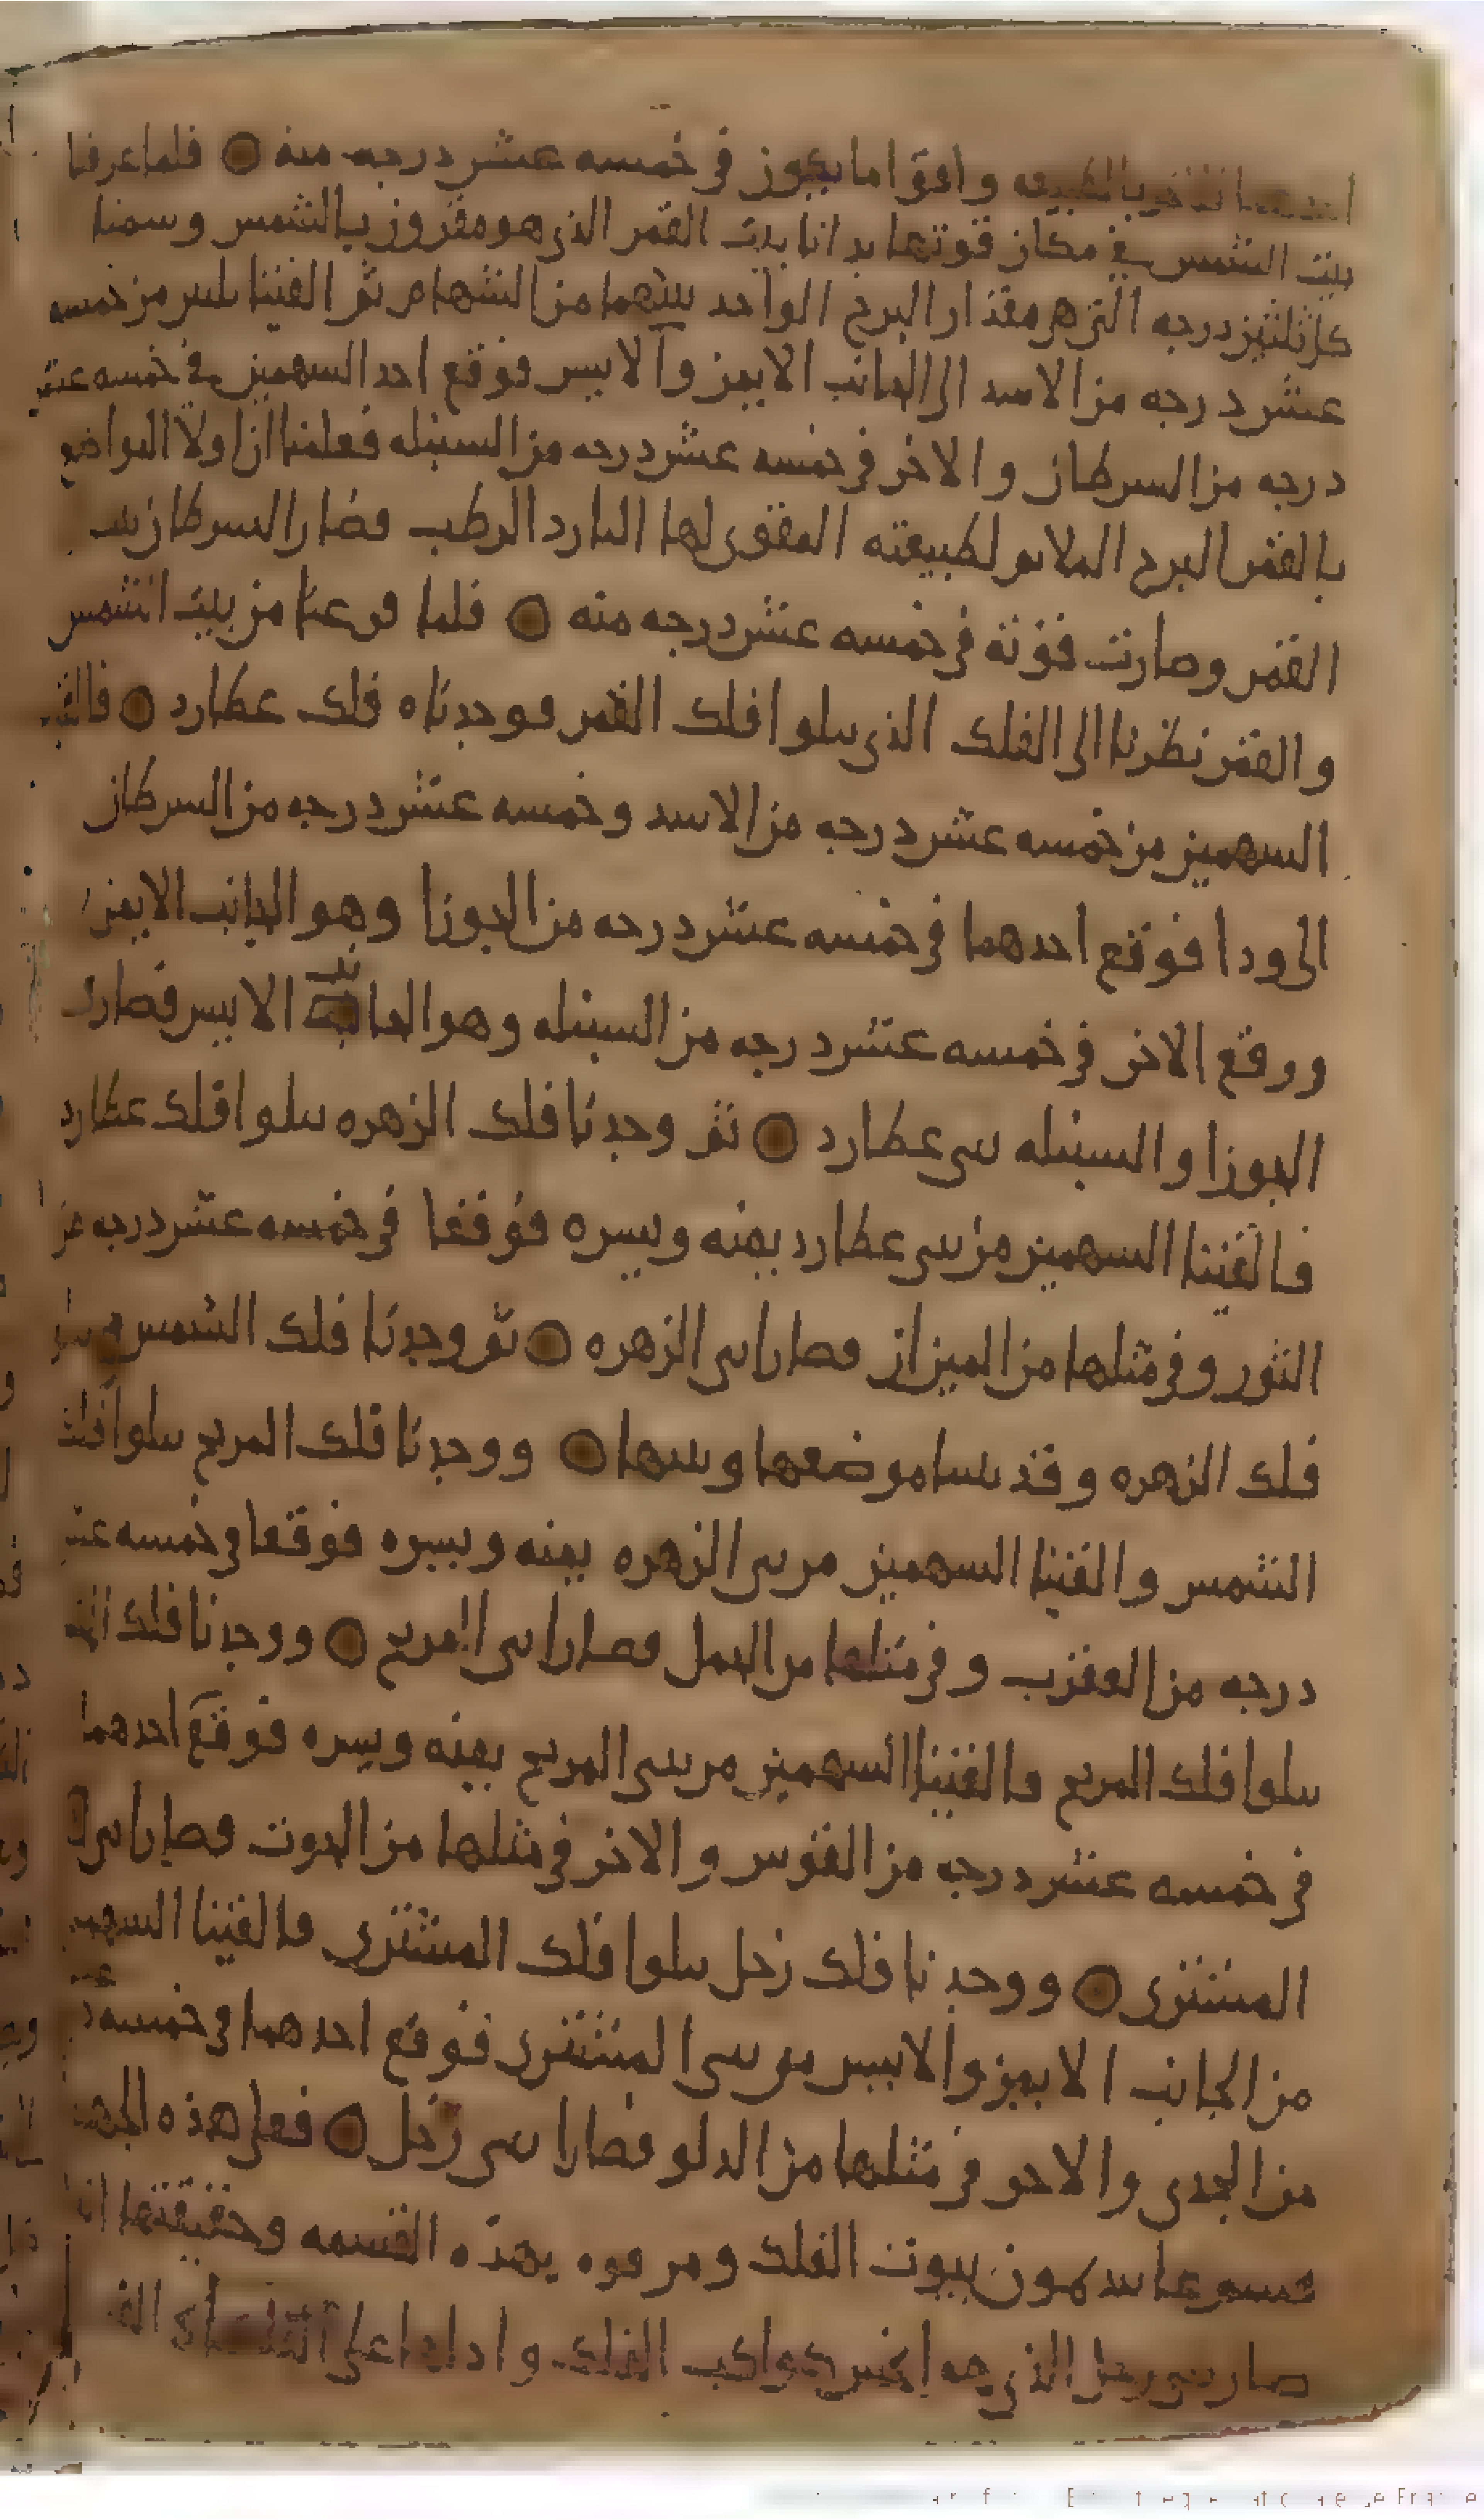 بالطبيعه واقوا ما يكون في خمسه عشر درجه منه ○ فلما عرفنا
بيت الشمس في مكان قوتها بدانا ببيت القمر الذي هو مقرون بالشمس وسمنا
كل ثلثين درجه التي هي مقدار البرج الواحد بينهما من السهام ثم القينا من خمسه
عشر درجه من الاسد الى الجانب الايمن والايسر فوقع احد السهمين في خمسه عشر
درجه من السرطان والاخر في خمسه عشر درجه من السنبله فعلمنا ان اولا المواضع
بالقمر البرج الملايم لطبيعته المقوى لها البارد الرطب فصار السرطان بيت
القمر وصارت قوته في خمسه عشر درجه منه ○ فلما فرغنا من بيت الشمس
والقمر نظرنا الى الفلك الذي يتلوا فلك القمر فوجدناه فلك عطارد ○ فالقينا
السهمين من خمسه عشر درجه من الاسد وخمسه عشر درجه من السرطان
الى ورا فوقع احدهما في خمسه عشر درجه من الجوزا وهو الجانب الايمن
ووقع الاخر في خمسه عشر درجه من السنبله وهو الجانب الايسر فصارت
الجوزا والسنبله بيتي عطارد ○ ثم وجدنا فلك الزهره يتلوا فلك عطارد
فالقينا السهمين من بيتي عطارد يمنه ويسره فوقعا في خمسه عشر درجه من
الثور وفي مثلها من الميزان فصارا بيتي الزهره ○ ثم وجدنا فلك الشمس يتلوا
فلك الزهره وقد بينا موضعها وبيتها ○ ووجدنا فلك المريخ يتلوا فلك
الشمس والقينا السهمين من بيتي الزهره يمنه ويسره فوقعا في خمسه عشر
درجه من العقرب وفي مثلها من الحمل فصارا بيتي المريخ ○ ووجدنا فلك
يتلوا فلك المريخ فالقينا السهمين من بيتي المريخ يمنه ويسره فوقع احدهما
في خمسه عشر درجه من القوس والاخر في مثلها من الحوت فصارا بيتي
المشتري ○ ووجدنا فلك زحل يتلوا فلك المشتري فالقينا السهمين
من الجانب الايمن والايسر من بيتي المشتري فوقع احدهما في خمسه عشر
من الجدي والاخر في مثلها من الدلو فصارا بيتي زحل ○ فعلى هذه الجهه
بيوت الفلك بهذه القسمه وحقيقتها
صار زحل الذي هو كواكب الفلك